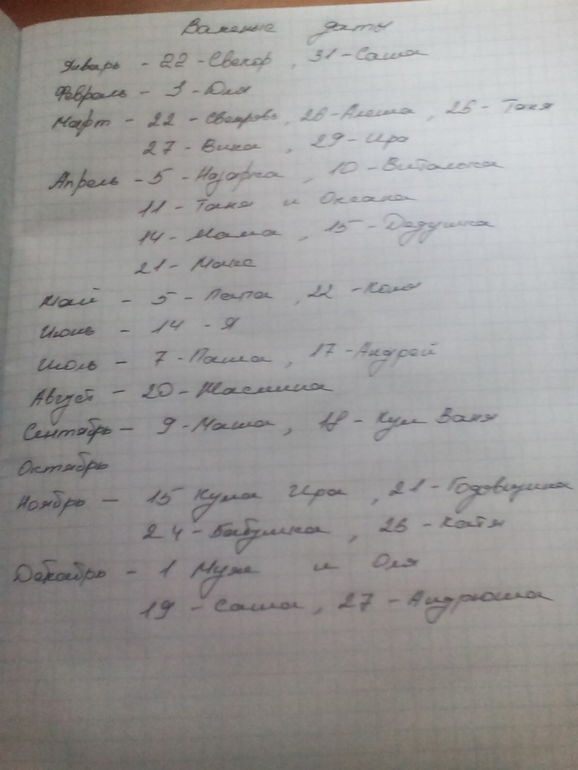 Важные даты
Январь - 22 - Свекор, 31 - Саша
Февраль - 3 - Юля
Март - 22 - Свекровь, 26 - Алеша, 26 - Таня
27 - Вика, 29 - Ира
Апрель - 5 - Назарка, 10 - Виталька
11 - Таня и Оксана
14 - Мама, 15 - Дедушка
21 - Макс
Май - 5 - Папа, 22 - Коля
Июнь - 14 - Я
Июль - 7 - Паша, 17 - Андрей
Август - 20 - Жасмина
Сентябрь - 9 - Маша, 18 - Кум Ваня
Октябрь
Ноябрь - 15 Кума Ира, 21 - Годовщина
24 - Бабушка, 26 - Катя
Декабрь - 1 Муж и Оля
19 - Саша, 27 - Андрюша